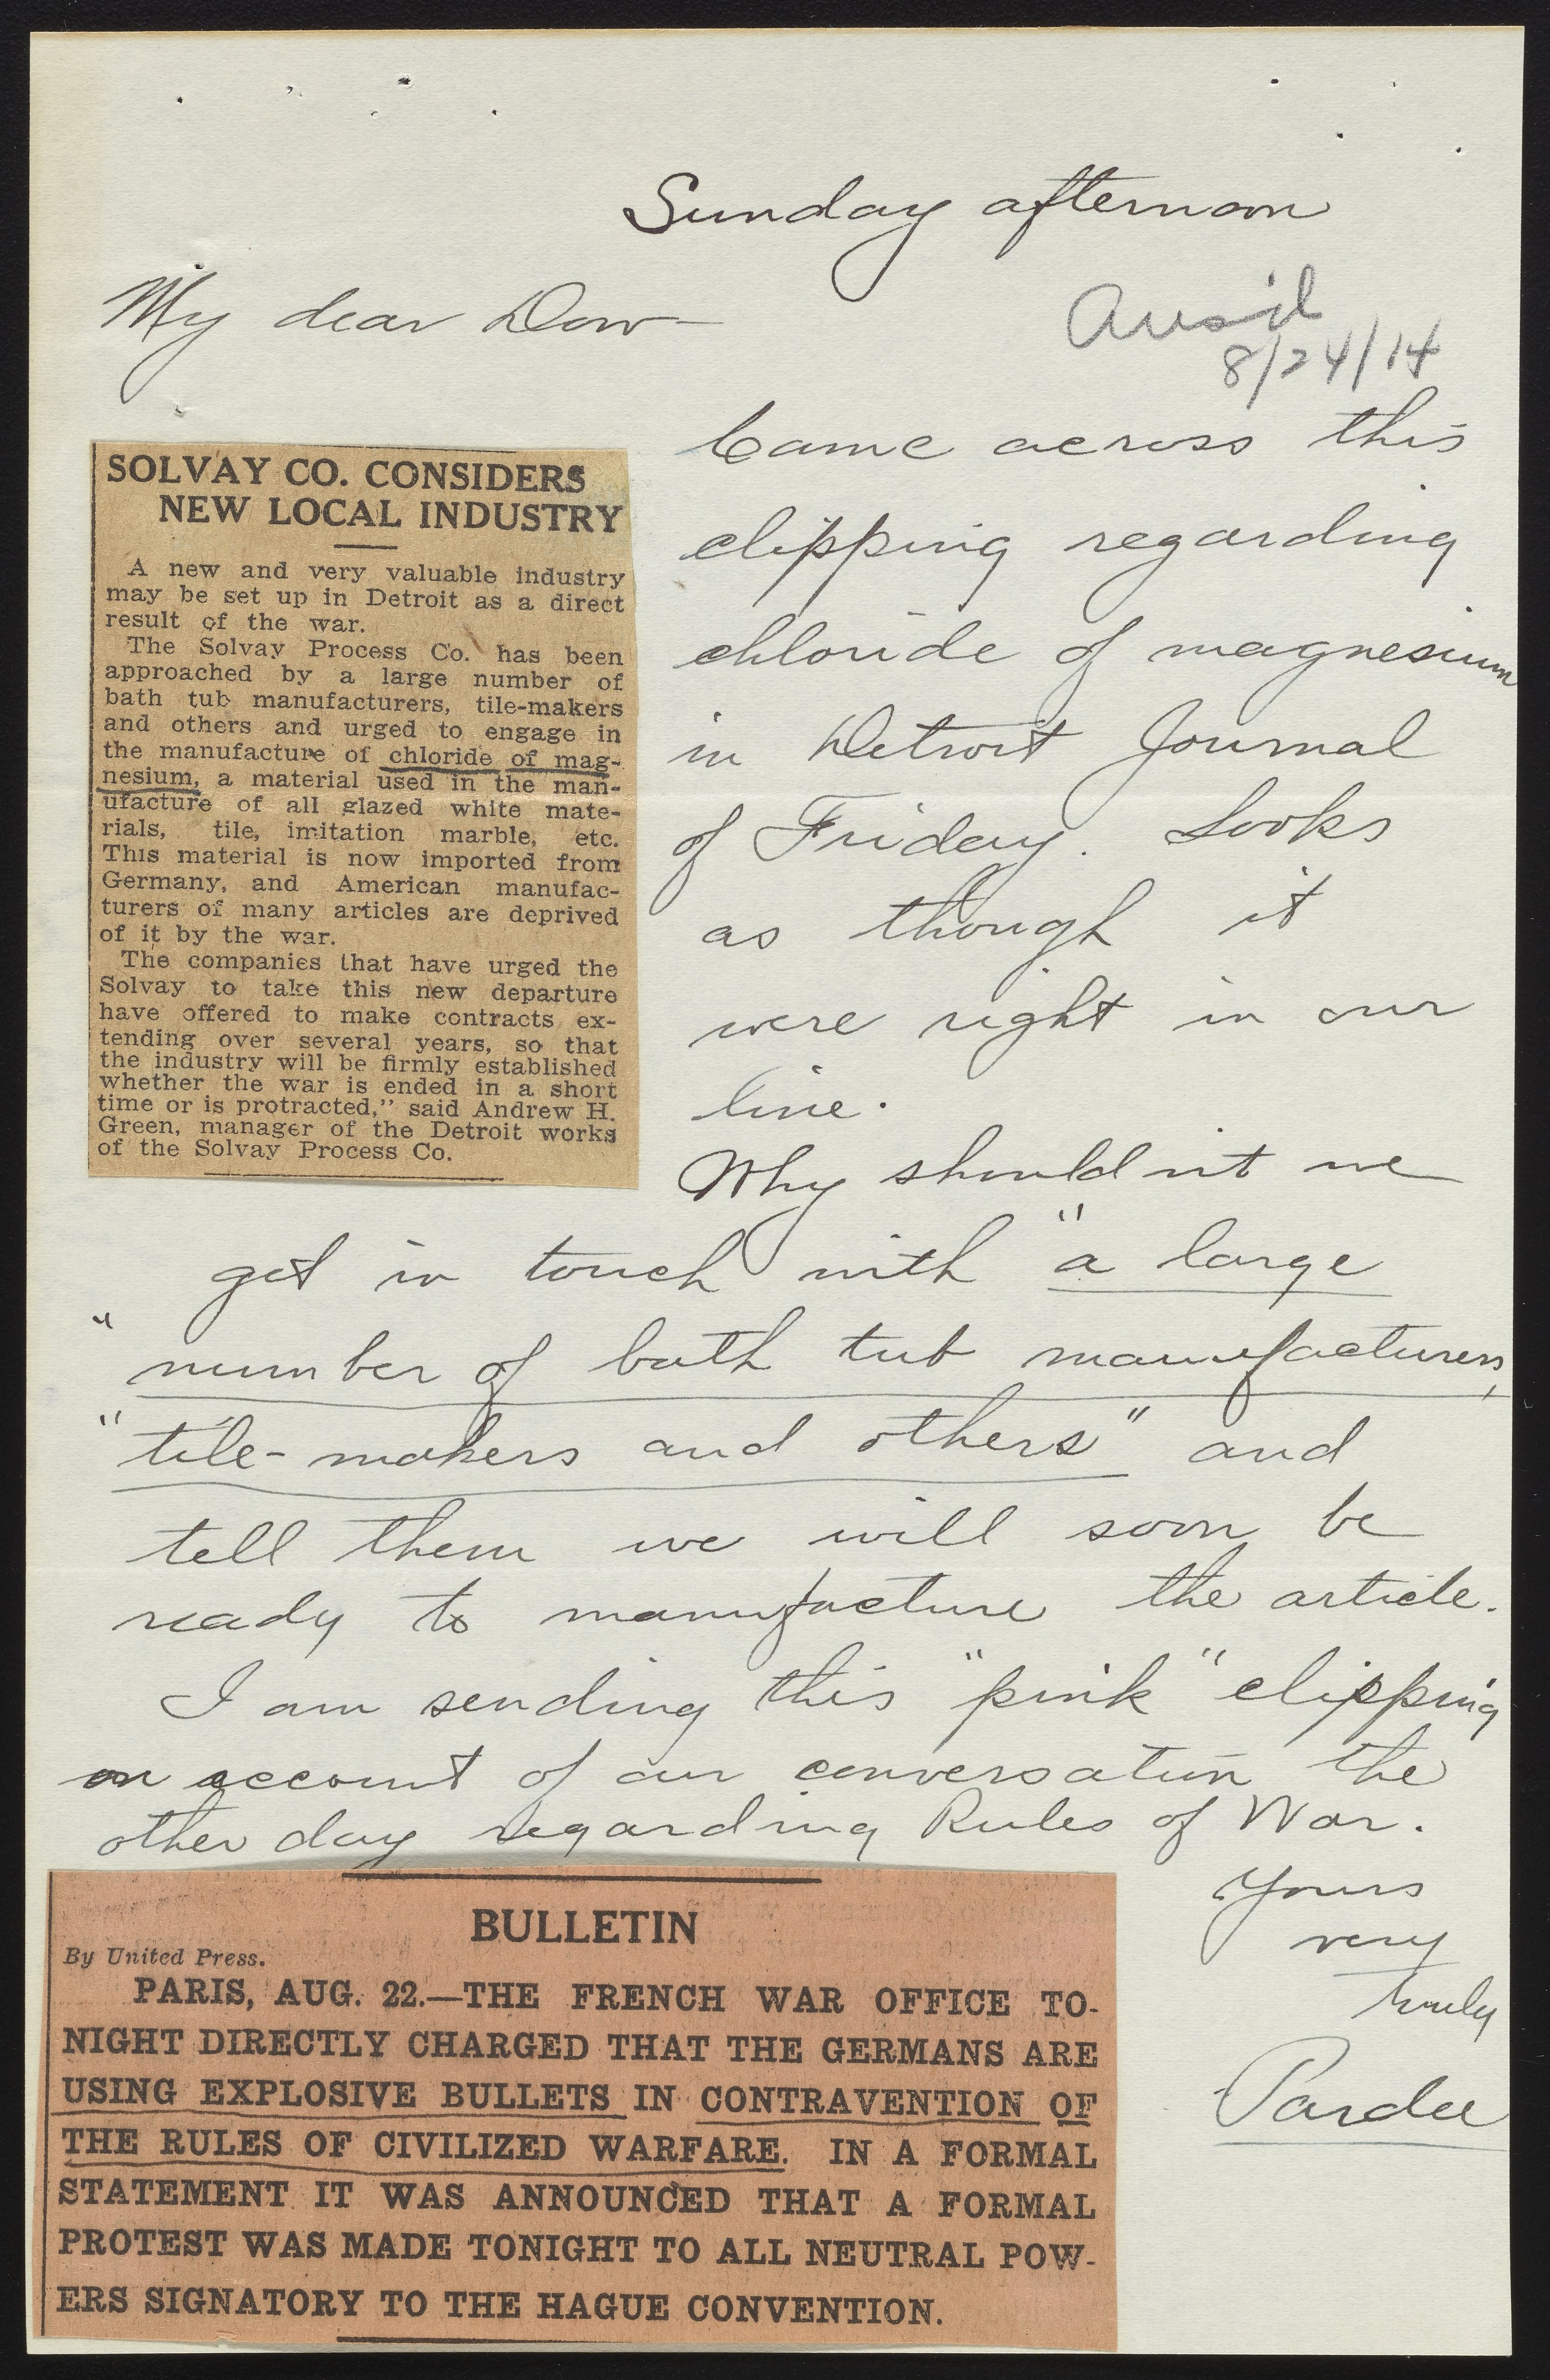 Sunday afternoon
My dear Dow—
8/24/14
SOLVAY CO. CONSIDERS
NEW LOCAL INDUSTRY
A new and very valuable industry
may be set up in Detroit as a direct
result of the war.
The Solvay Process Co. has been
approached by a large number of
bath tub manufacturers, tile-makers
and others and urged to engage in
the manufacture of chloride of mag-
nesium, a material used in the man-
ufacture of all glazed white mate-
rials, tile, imitation marble, etc.
This material is now imported from
Germany, and American manufac-
turers of many articles are deprived
of it by the war.
The companies that have urged the
Solvay to take this new departure
have offered to make contracts ex-
tending over several years, so that
the industry will be firmly established
whether the war is ended in a short
time or is protracted," said Andrew H.
Green, manager of the Detroit works
of the Solvay Process Co.
Came across this
clipping regarding
chloride of magnesium
in Detroit Journal
of Friday. Looks
as though it
were right in our
line.
Why shouldn't we
get in touch with "a large
"number of bath tub manufacturers,
"tile-makers and others" and
tell them we will soon be
ready to manufacture the article.
I am sending this "pink" clipping
on account of our conversation the
other day regarding Rules of War.
Yours
very
truly
Pardee
BULLETIN
By United Press.
PARIS, AUG. 22.—THE FRENCH WAR OFFICE TO-
NIGHT DIRECTLY CHARGED THAT THE GERMANS ARE
USING EXPLOSIVE BULLETS IN CONTRAVENTION OF
THE RULES OF CIVILIZED WARFARE. IN A FORMAL
STATEMENT IT WAS ANNOUNCED THAT A FORMAL
PROTEST WAS MADE TONIGHT TO ALL NEUTRAL POW-
ERS SIGNATORY TO THE HAGUE CONVENTION.